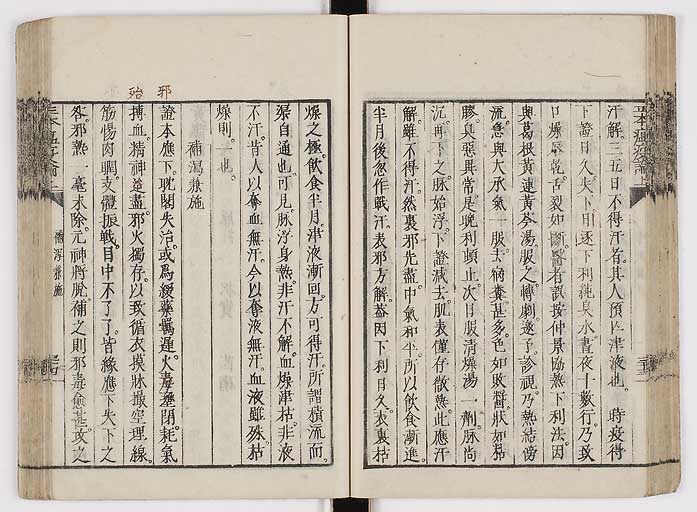 汗解。三五日不得汗者。其人預亡津液也。 時疫得
下證。日久失下。日逐下利純臭水。晝夜十數行。乃致
口燥唇乾。舌裂如斷。醫者誤按仲景協熱下利法。因
與葛根黃連黃芩湯。服之轉劇。邀予診視。乃熱結傍
流。急與大承氣一服。去宿糞甚多。色如敗醬。狀如粘
膠。臭惡異常。是晚利頓止。次日服清燥湯一劑。脉尚
沉。再下之。脉始浮。下證減去。肌表僅存微熱。此應汗
解。雖不得汗。然裏邪先盡。中氣和平。所以飲食漸進。
半月後忽作戰汗。表邪方解。蓋因下利日久。表裏枯
燥之極。飲食半月。津液漸回。方可得汗。所謂積流而
渠自通也。可見脉浮身熱。非汗不解。血燥津枯。非液
不汗。昔人以奪血無汗。今以奪液無汗。血液雖殊。枯
燥則一也。
補瀉兼施
證本應下。耽閣失治。或爲緩藥羈遲。火毒壅閉。耗氣
搏血。精神殆盡。邪火獨存。以致循衣摸牀。撮空理線。
筋惕肉瞤。支體振戰。目中不了了。皆緣應下失下之
咎。邪熱一毫未除。元神將脫。補之則邪毒愈甚。攻之
邪
殆
補瀉兼施